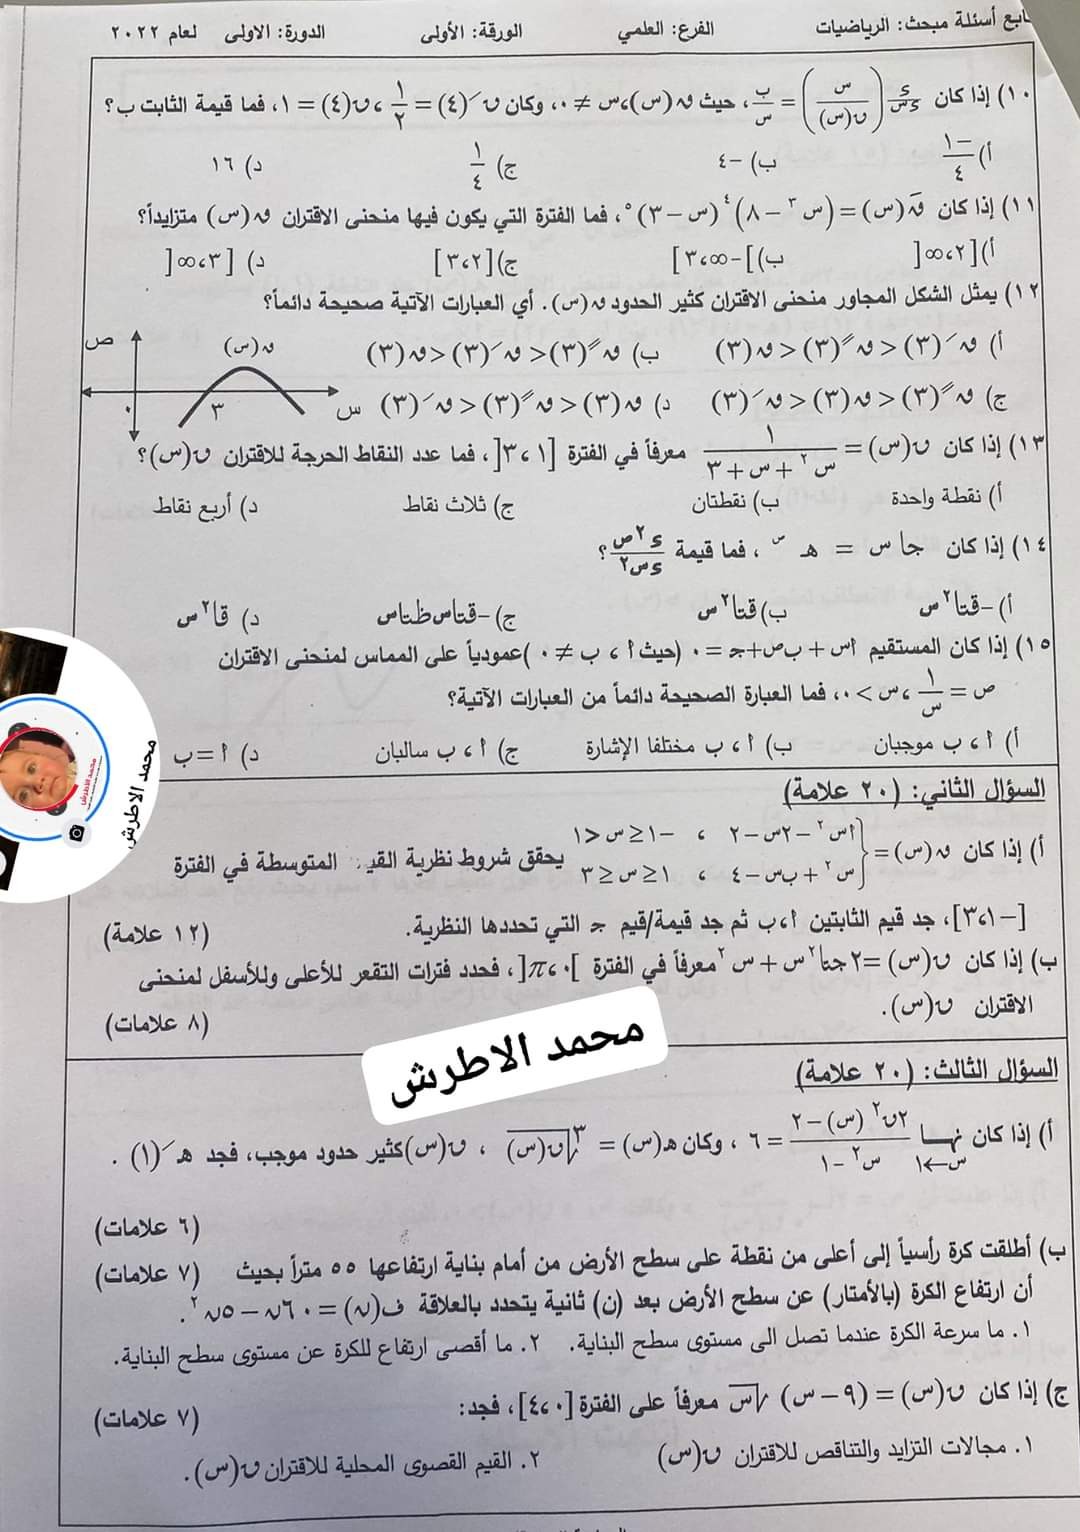 تابع أسئلة مبحث: الرياضيات الفرع: العلمي الورقة: الأولى الدورة: الاولى لعام ٢٠٢٢
١٠) إذا كان ء/ءس (س/ق(س)) = ب/س، حيث ق(س)، س ≠ ٠، وكان قَ(٤) = ١/٢، ق(٤) = ١، فما قيمة الثابت ب؟
أ) -١/٤ ب) -٤ ج) ١/٤ د) ١٦
١١) إذا كان قَ(س) = (س³ - ٨)⁴ (س - ٣)⁵، فما الفترة التي يكون فيها منحنى الاقتران ق(س) متزايداً؟
أ) [٢، ∞[ ب) ]-∞، ٣] ج) [٢، ٣] د) [٣، ∞[
١٢) يمثل الشكل المجاور منحنى الاقتران كثير الحدود ق(س). أي العبارات الآتية صحيحة دائماً؟
أ) قَ(٣) > قً(٣) > ق(٣) ب) قً(٣) > قَ(٣) > ق(٣)
ج) قً(٣) > ق(٣) > قَ(٣) د) ق(٣) > قً(٣) > قَ(٣)
ص ق(س) ٠ ٣ س
١٣) إذا كان ق(س) = ١/(س² + س + ٣) معرفاً في الفترة [١، ٣[، فما عدد النقاط الحرجة للاقتران ق(س)؟
أ) نقطة واحدة ب) نقطتان ج) ثلاث نقاط د) أربع نقاط
١٤) إذا كان جا س = هـ ^ص، فما قيمة ء²ص/ءس²؟
أ) -قتا²س ب) قتا²س ج) -قتاس ظتاس د) قا²س
١٥) إذا كان المستقيم أس + ب ص + جـ = ٠ (حيث أ، ب ≠ ٠) عمودياً على المماس لمنحنى الاقتران
ص = ١/س، س > ٠، فما العبارة الصحيحة دائماً من العبارات الآتية؟
أ) أ، ب موجبان ب) أ، ب مختلفا الإشارة ج) أ، ب سالبان د) أ = ب
السؤال الثاني: (٢٠ علامة)
أ) إذا كان ق(س) = { أس² - ٢س - ٢ ، -١ ≤ س < ١
س² + ب س - ٤ ، ١ ≤ س ≤ ٣ يحقق شروط نظرية القي المتوسطة في الفترة
[-١، ٣]، جد قيم الثابتين أ، ب ثم جد قيمة/قيم جـ التي تحددها النظرية. (١٢ علامة)
ب) إذا كان ق(س) = ٢جتا²س + س² معرفاً في الفترة ]٠، π[، فحدد فترات التقعر للأعلى وللأسفل لمنحنى
الاقتران ق(س). (٨ علامات)
محمد الاطرش
محمد الاطرش
السؤال الثالث: (٢٠ علامة)
أ) إذا كان نهـــا س←١ (٢ق²(س) - ٢)/(س² - ١) = ٦ ، وكان هـ(س) = ³√ق(س) ، ق(س) كثير حدود موجب، فجد هـَ(١) .
(٦ علامات)
ب) أطلقت كرة رأسياً إلى أعلى من نقطة على سطح الأرض من أمام بناية ارتفاعها ٥٥ متراً بحيث (٧ علامات)
أن ارتفاع الكرة (بالأمتار) عن سطح الأرض بعد (ن) ثانية يتحدد بالعلاقة ف(ن) = ٦٠ن - ٥ن².
١. ما سرعة الكرة عندما تصل الى مستوى سطح البناية. ٢. ما أقصى ارتفاع للكرة عن مستوى سطح البناية.
ج) إذا كان ق(س) = (٩ - س) √س معرفاً على الفترة [٠، ٤]، فجد: (٧ علامات)
١. مجالات التزايد والتناقص للاقتران ق(س) ٢. القيم القصوى المحلية للاقتران ق(س).